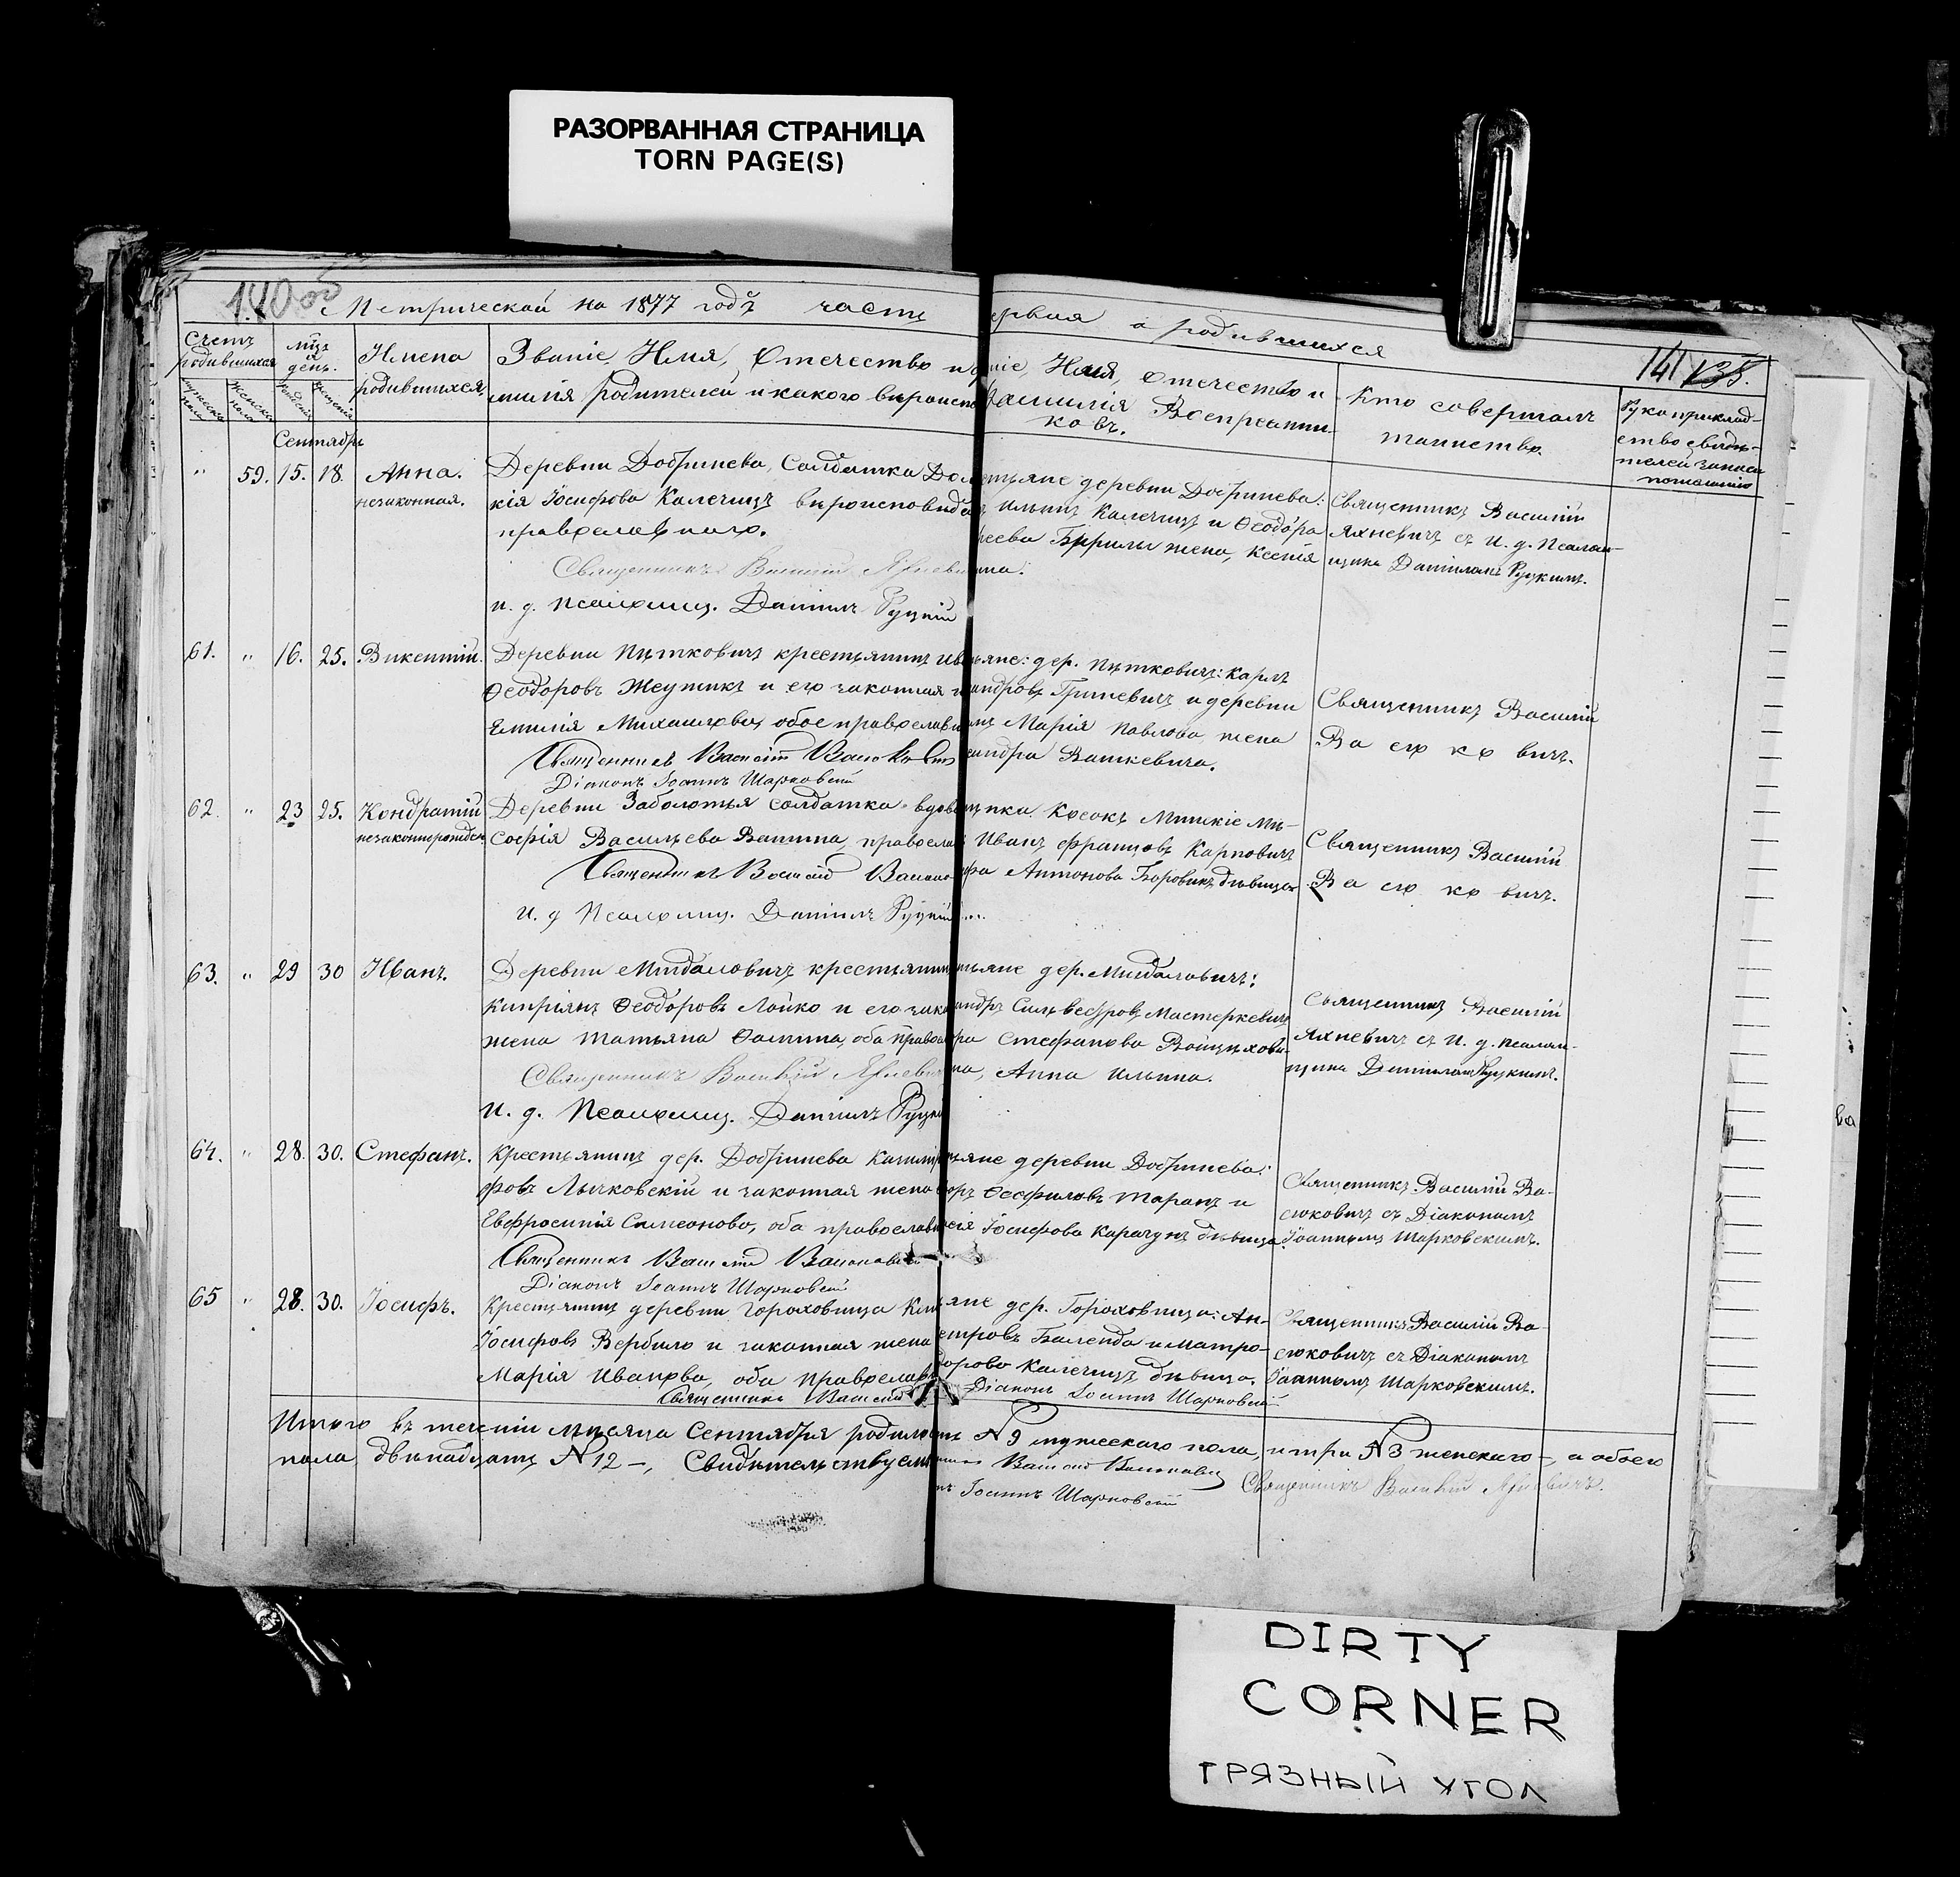 РАЗОРВАННАЯ СТРАНИЦА
TORN PAGE(S)
140
Метрической на 1877 годъ часть
ервая о родившихся
141 138.
Счетъ родившихся
Мѣс. и день.
Имена родившихся.
Званіе, Имя, Отчество и
милія родителей и какого вѣроиспо
ніе, Имя, Отчество и
Фамилія Воспреемни-
ковъ.
Кто совершалъ
таинство.
Рукоприклад-
ство свидѣ-
телей записи
Сентябрь
" 59. 15. 18. Анна.
незаконная.
Деревни Добринева, Солдатка До
кія Іосифова Калечицъ вѣроисповѣда
православнаго.
Священникъ Василій Яхневи
и. д. Псаломщ. Даніилъ Руцкій
стьяне деревни Добринева:
Ильинъ Калечицъ и Ѳеодора
еева Бирилы жена, Ксенія
ина.
Священникъ Василій
Яхневичъ съ и. д. Псалом-
щика Даніиломъ Руцкимъ.
61. " 16. 25. Викентій.
Деревни Путкович крестьянинъ Ив
Ѳеодоровъ Жеутикъ и его законная
Емилія Михаилова, обое православн
Священникъ Василій
Діаконъ Іоаннъ Шарковскій
ьяне: дер. Путкович: Карлъ
андровъ Гриневичъ и деревни
Марія Павлова, жена
сандра Вашкевича.
Священникъ Василій
Васюковичъ.
62. " 23 25. Кондратій
незаконнорожден.
Деревни Заболотья солдатка-вдов
Софія Васильева Ванина, правосла
Священникъ Василій
и. д Псаломщ. Даніилъ Руцкій
Иванъ Францовъ Карповичъ
фа Антонова Боровикъ дѣвица
Священникъ Василій
Васюковичъ.
63. " 29 30 Иванъ.
Деревни Мигдаловичъ крестьянин
Кипріянъ Ѳеодоровъ Лойко и его зако
жена Татьяна Ѳомина, оба правос
Священникъ Василій Яхневи
и. д. Псаломщ. Даніилъ Руцк
тьяне дер. Мигдаловичъ:
андръ Сильвестровъ Мастеркевичъ
ра Стефанова Войцѣхови-
на, Анна Ильина.
Священникъ Василій
Яхневичъ съ и. д. псалом-
щика Даніиломъ Руцкимъ.
64. " 28. 30. Стефанъ.
Крестьянинъ дер. Добринева Казимір
фовъ Лычковскій и законная жена
Евфросинія Симеонова, оба православн
Священникъ Василій Васюкови
Діаконъ Іоаннъ Шарковскій
ьяне деревни Добринева:
оръ Ѳеофиловъ Таранъ и
сія Іосифова Карачунъ дѣвица
Священникъ Василій Ва-
сюковичъ съ Діакономъ
Іоанномъ Шарковскимъ.
65 " 28. 30. Іосифъ.
Крестьянинъ деревни Гороховища Кли
Іосифовъ Вербило и законная жена
Марія Иванова, оба православ
Священникъ Василій
яне дер. Гороховища: Ан-
етровъ Баленда и Матро-
дорова Калечицъ дѣвица.
Діаконъ Іоаннъ Шарковскій
Священникъ Василій Ва-
сюковичъ съ Діакономъ
Іоанномъ Шарковскимъ.
Итого въ теченіи мѣсяца Сентября родило
сь №9 мужескаго пола, и три №3 женскаго –, а обоего
пола двѣнадцать №12 –, Свидѣтельствуем
Василій Васюкович
нъ Іоаннъ Шарковскій
Священникъ Василій Яхневичъ.
ва
DIRTY
CORNER
ГРЯЗНЫЙ УГОЛ